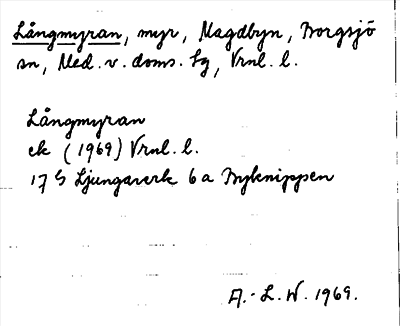 Långmyran, myr, Magdbyn, Borgsjö
sn, Med. v. doms. tg, Vrnl. l.
Långmyran
ek (1969) Vrnl. l.
17 G Ljungaverk 6 a Byknippen
A.-L. W. 1969.